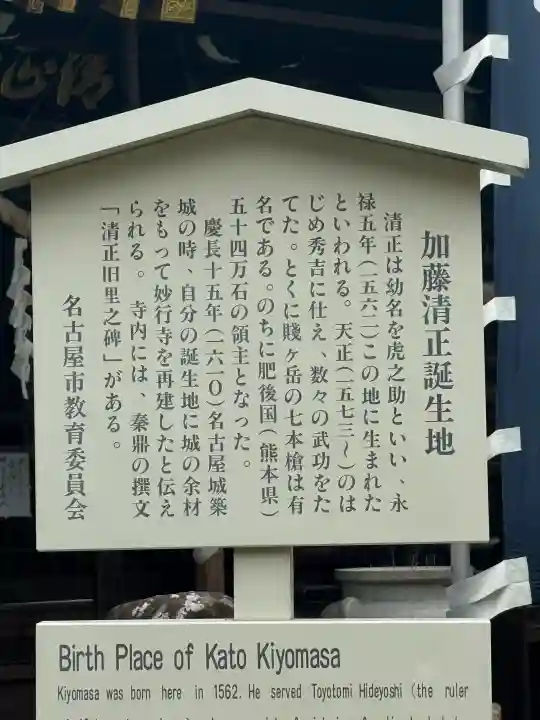 加藤清正誕生地
清正は幼名を虎之助といい、永
禄五年(一五六二)この地に生まれた
といわれる。天正(一五七三〜)のは
じめ秀吉に仕え、数々の武功をた
てた。とくに賤ヶ岳の七本槍は有
名である。のちに肥後国(熊本県)
五十四万石の領主となった。
慶長十五年(一六一〇)名古屋城築
城の時、自分の誕生地に城の余材
をもって妙行寺を再建したと伝え
られる。寺内には、秦鼎の撰文
「清正旧里之碑」がある。
名古屋市教育委員会
Birth Place of Kato Kiyomasa
Kiyomasa was born here in 1562. He served Toyotomi Hideyoshi (the ruler